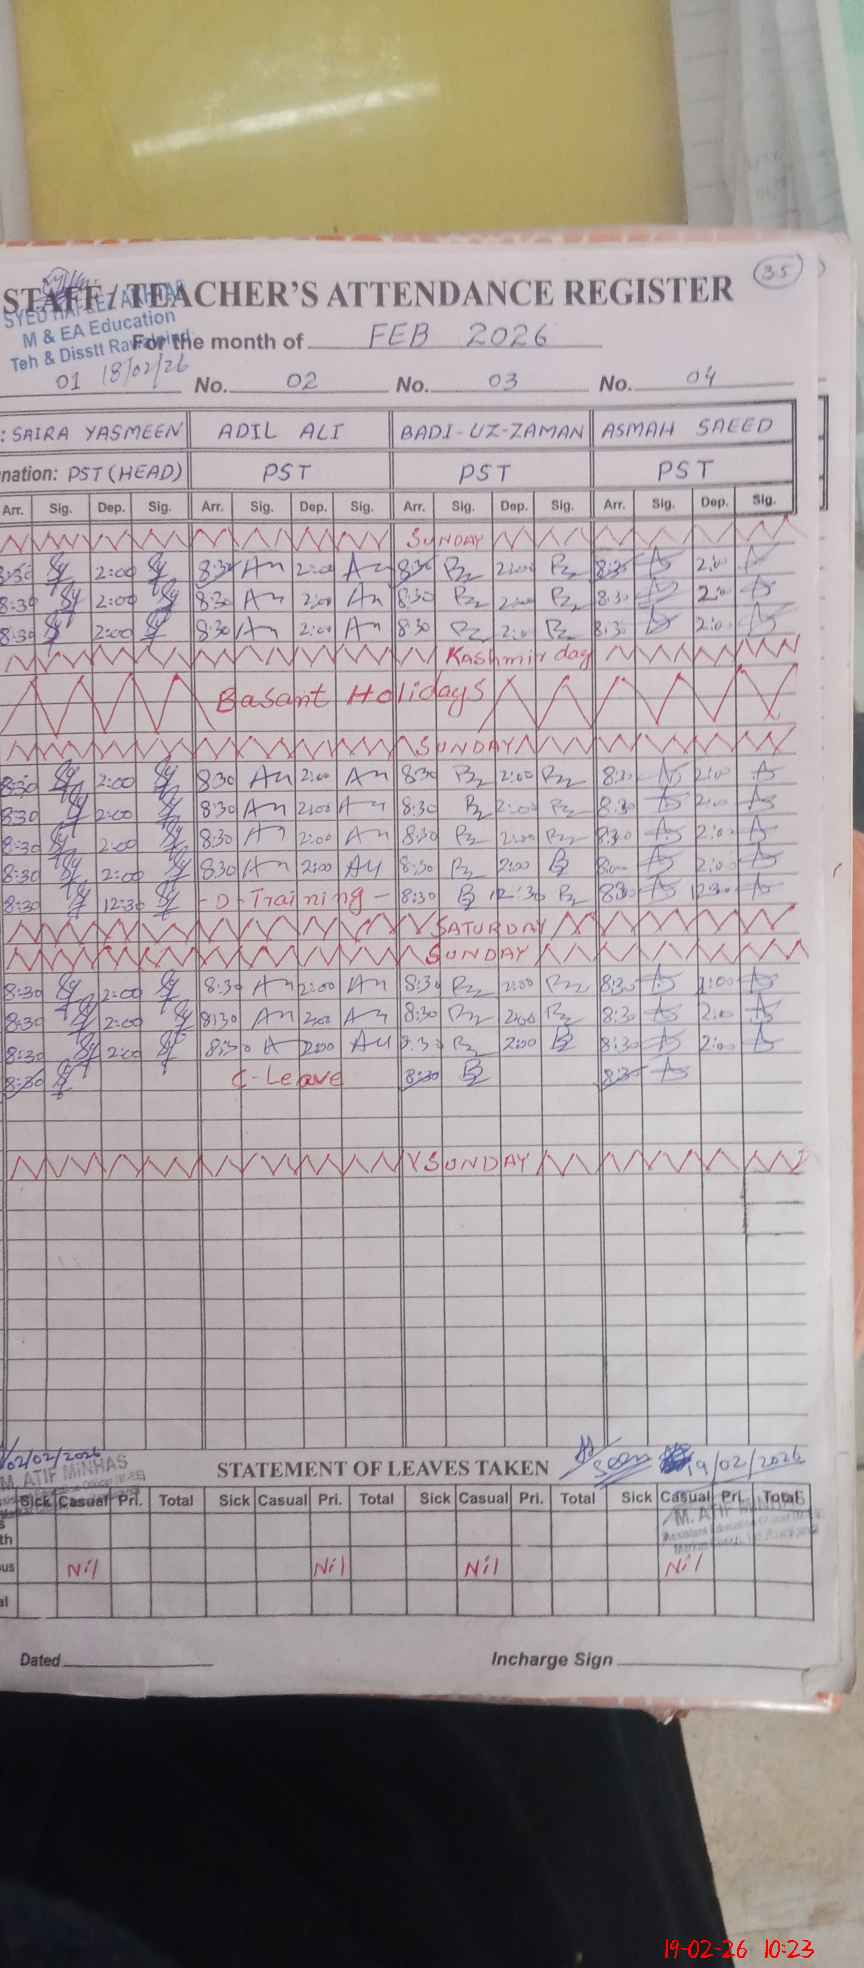 35
STAFF / TEACHER'S ATTENDANCE REGISTER
M & EA Education
Teh & Disstt
For the month of FEB 2026
18/02/26
01 No. 02 No. 03 No. 04
: SAIRA YASMEEN ADIL ALI BADI-UZ-ZAMAN ASMAH SAEED
nation: PST (HEAD) PST PST PST
Arr. Sig. Dep. Sig. Arr. Sig. Dep. Sig. Arr. Sig. Dep. Sig. Arr. Sig. Dep. Sig.
SUNDAY
8:30 2:00 8:30 2:00 8:30 2:00 8:30 2:00
8:30 2:00 8:30 2:00 8:30 2:00 8:30 2:00
8:30 2:00 8:30 2:00 8:30 2:00 8:30 2:00
Kashmir day
Basant Holidays
SUNDAY
8:30 2:00 8:30 2:00 8:30 2:00 8:30 2:00
8:30 2:00 8:30 2:00 8:30 2:00 8:30 2:00
8:30 2:00 8:30 2:00 8:30 2:00 8:30 2:00
8:30 2:00 8:30 2:00 8:30 2:00 2:00
8:30 12:30 - D - Training - 8:30 12:30 8:30 12:30
SATURDAY
SUNDAY
8:30 2:00 8:30 2:00 8:30 2:00 8:30 2:00
8:30 2:00 8:30 2:00 8:30 2:00 8:30 2:00
8:30 2:00 8:30 2:00 8:30 2:00 8:30 2:00
8:30 C-Leave 8:30 8:30
SUNDAY
02/02/2026
M. ATIF MINHAS
STATEMENT OF LEAVES TAKEN
Seen 19/02/2026
Sick Casual Pri. Total Sick Casual Pri. Total Sick Casual Pri. Total Sick Casual Pri. Total
M. ATIF MINHAS
Nil Nil Nil Nil
Dated Incharge Sign
19-02-26 10:23